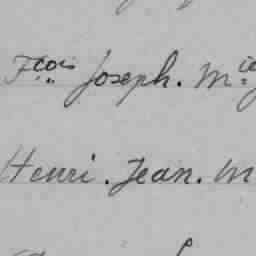 Fçois Joseph. Mie
Henri. Jean. M